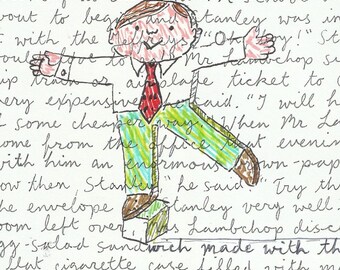 out to be
Stanley was in
t with the
Oh boy!" S
Mr Lambchop s
ip train or airplane ticket to C
very expensive he said. "I will h
d some cheaper way. When Mr Lam
ome from the office that evenin
with him an enormous own-pap
ow then Stanley" he said. "Try th
he envelope Stanley very well.
oom left over Mrs Lambchop disc
gg-salad sandwich made with th
but cigarette case filled with m